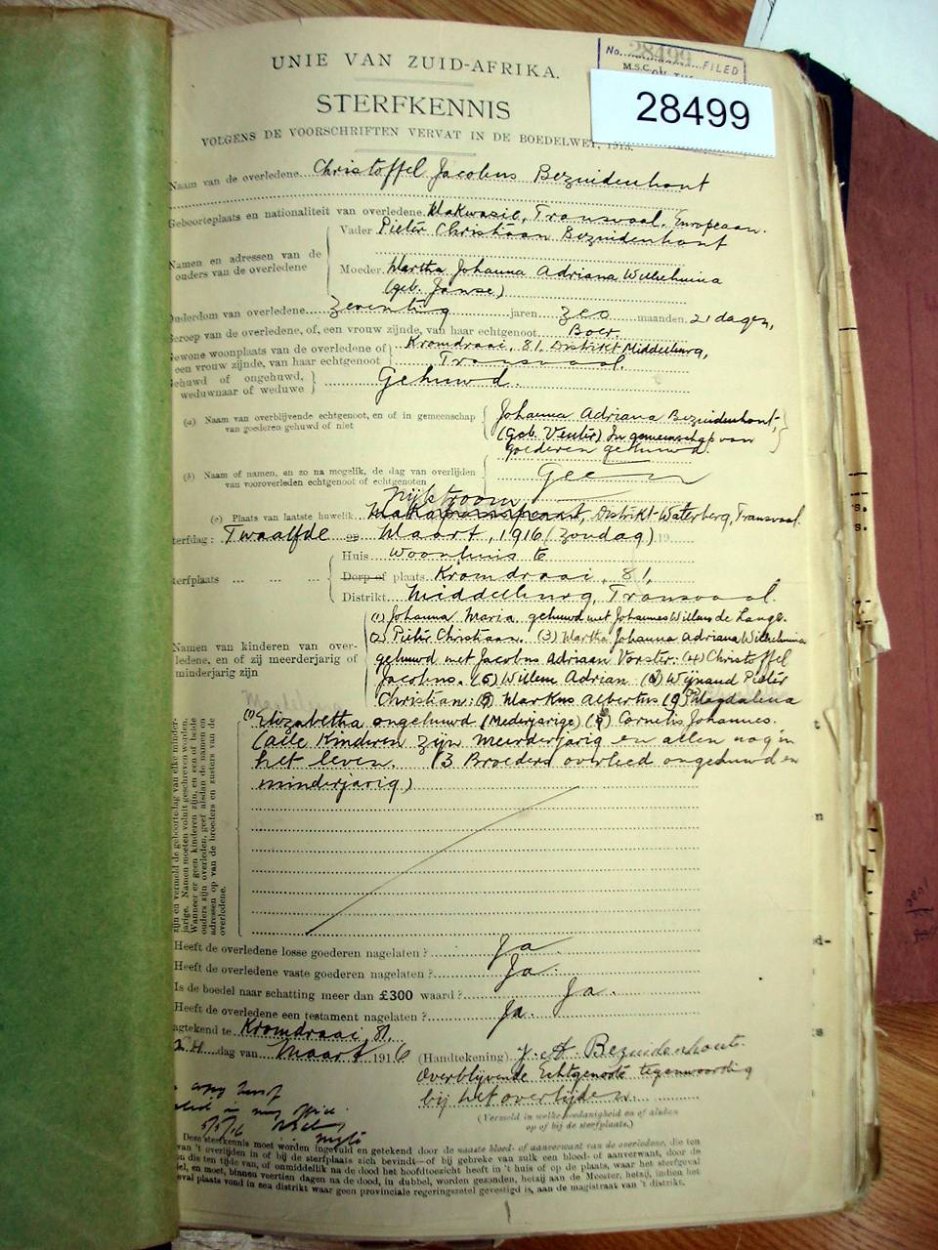 No. 28499 FILED
M.S.C.
28499
UNIE VAN ZUID-AFRIKA.
STERFKENNIS
VOLGENS DE VOORSCHRIFTEN VERVAT IN DE BOEDELWET, 1913.
Naam van de overledene Christoffel Jacobus Bezuidenhout
Geboorteplaats en nationaliteit van overledene Makwasie, Transvaal, Europeaan.
Namen en adressen van de ouders van de overledene
Vader Pieter Christiaan Bezuidenhout
Moeder Martha Johanna Adriana Wilhelmina
(geb. Janse)
Ouderdom van overledene zeventig jaren zes maanden 21 dagen,
Beroep van de overledene, of, een vrouw zijnde, van haar echtgenoot Boer
Gewone woonplaats van de overledene of een vrouw zijnde, van haar echtgenoot
Kromdraai, 81, Distrikt Middelburg,
Transvaal.
Gehuwd of ongehuwd, weduwnaar of weduwe Gehuwd.
(a) Naam van overblijvende echtgenoot, en of in gemeenschap
van goederen gehuwd of niet
Johanna Adriana Bezuidenhout,
(Geb. Venter) In gemeenschap van
goederen gehuwd.
(b) Naam of namen, en zo na mogelik, de dag van overlijden
van vooroverleden echtgenoot of echtgenoten
Geen
Nijlstroom
(c) Plaats van laatste huwelik Distrikt-Waterberg, Transvaal
Sterfdag: Twaalfde Maart, 1916 (Zondag) 19
Sterfplaats
Huis woonhuis te
Dorp of plaats Kromdraai, 81,
Distrikt Middelburg, Transvaal.
Namen van kinderen van overledene, en of zij meerderjarig of minderjarig zijn
(1) Johanna Maria, gehuwd met Johannes Willem de Lange.
(2) Pieter Christiaan. (3) Martha Johanna Adriana Wilhelmina
gehuwd met Jacobus Adriaan Vorster: (4) Christoffel
Jacobus. (5) Willem Adrian. (6) Wijnand Pieter
Christian: Markus Albertus Magdalena
Elizabetha ongehuwd (Mederjarige) Cornelis Johannes.
(alle Kinderen zijn meerderjarig en allen nog in
het leven. (3 Broeders overleed ongehuwd en
minderjarig)
zijn en vermeld de geboortedag van elke minderjarige. Namen moeten voluit geschreven worden. Wanneer er geen kinderen zijn, en een of beide ouders zijn overleden, geef alsdan de namen en adressen op van de broeders en zusters van de overledene.
Heeft de overledene losse goederen nagelaten? Ja
Heeft de overledene vaste goederen nagelaten? Ja.
Is de boedel naar schatting meer dan £300 waard? Ja.
Heeft de overledene een testament nagelaten? Ja.
Kromdraai, 81,
dag van Maart 1916 (Handtekening) J. A. Bezuidenhout.
Overblijvende Echtgenote tegenwoordig
bij het overlijden.
(Vermeld in welke hoedanigheid en of alsdan
op of bij de sterfplaats.)
Deze sterfkennis moet worden ingevuld en getekend door de naaste bloed- of aanverwant van de overledene, die ten
van 't overlijden in of bij de sterfplaats zich bevindt—of bij gebreke van zulk een bloed- of aanverwant, door de
die ten tijde van, of onmiddellik na de dood het hoofdtoezicht heeft in 't huis of op de plaats, waar het sterfgeval
en moet, binnen veertien dagen na de dood, in dubbel, worden gezonden, hetzij aan de Meester, hetzij, indien het
geval plaats vond in een distrikt waar geen provinciale regeringszetel gevestigd is, aan de magistraat van 't distrikt.